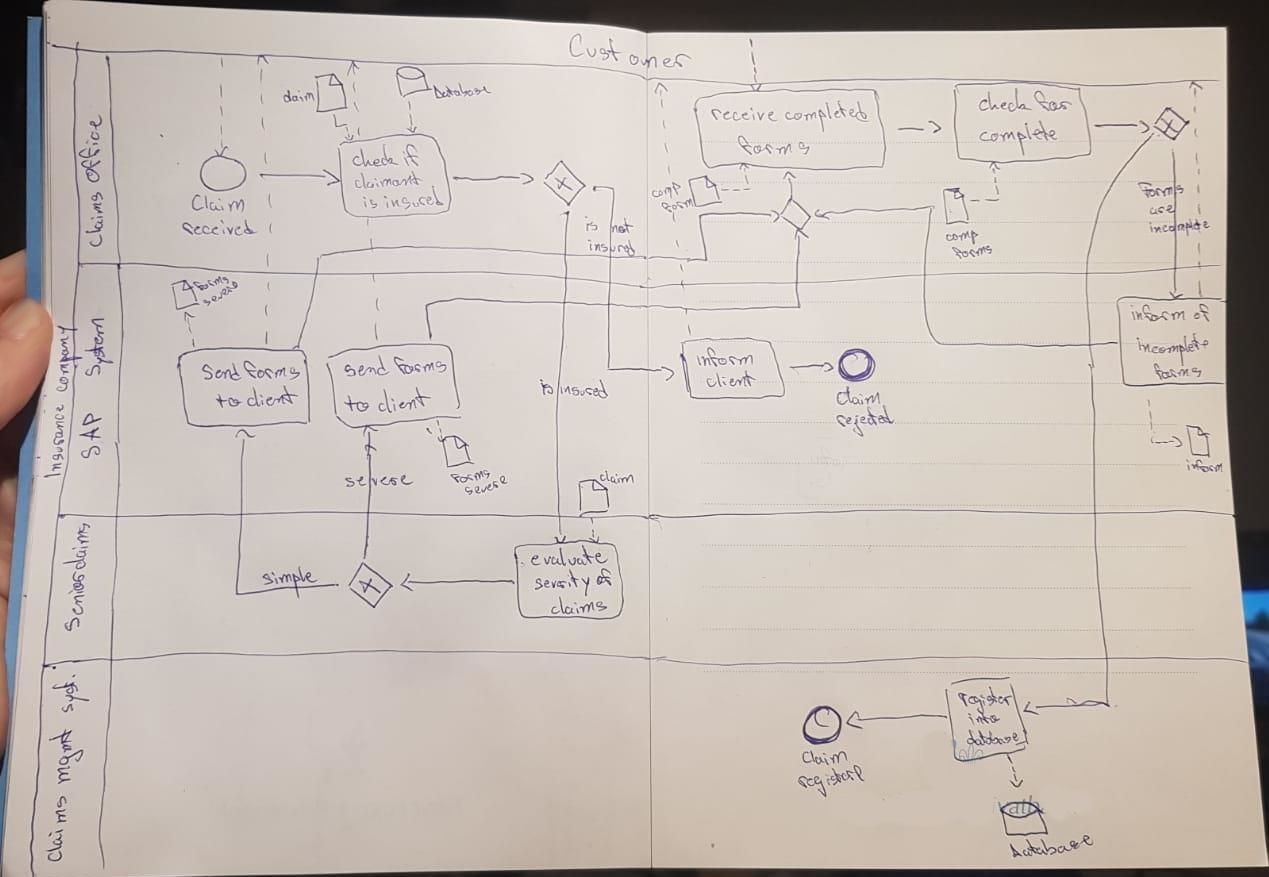 Customer
Insurance company
Claims office
claim
Database
Claim
received
check if
claimant
is insured
is not
insured
receive completed
forms
comp
form
check for
complete
comp
forms
forms
are
incomplete
SAP System
forms
severe
Send forms
to client
send forms
to client
severe
forms
severe
is insured
inform
client
Claim
rejected
inform of
incomplete
forms
inform
Senior claims
simple
claim
evaluate
severity of
claims
Claims mgmt syst.
register
into
database
Claim
Database